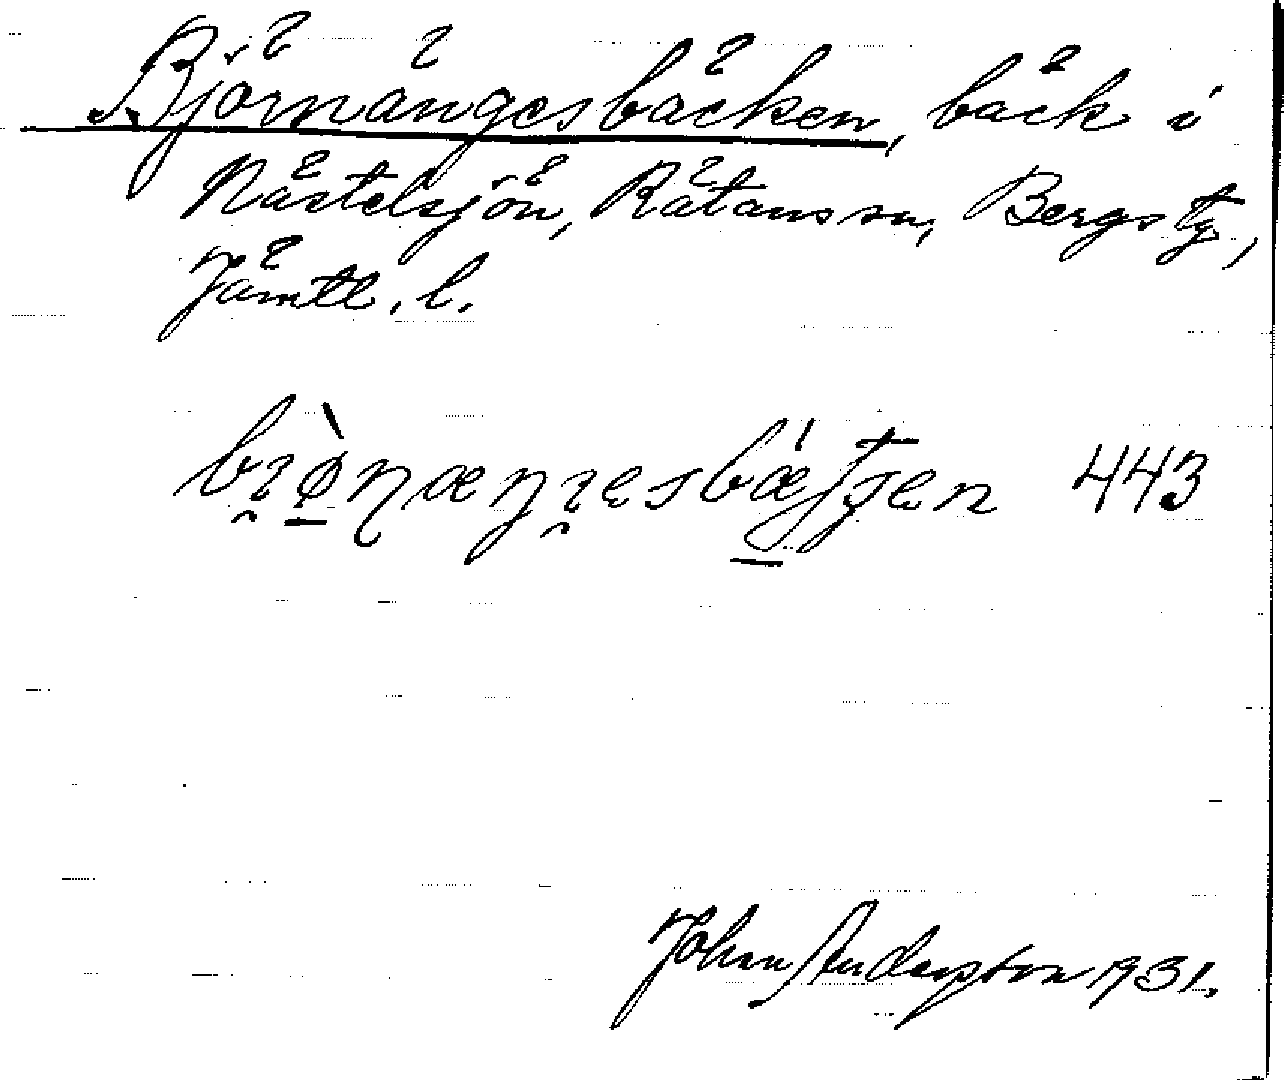 Björnängesbäcken, bäck i
Nästelsjön, Rätans sn, Bergs tg,
Jämtl. l.
bı̯ø̠̀ɳæŋı̯esbǽ̠ʃʈʂen 443
John Anderson 1931.